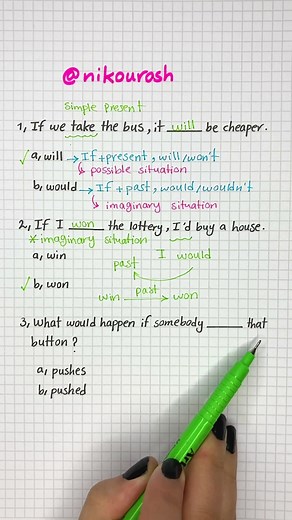 @nikourosh
Simple Present
1, If we take the bus, it will be cheaper.
✓ a, will → If + present, will / won't
↳ possible situation
b, would → If + past, would / wouldn't
↳ imaginary situation
2, If I won the lottery, I'd buy a house.
* imaginary situation
a, win
I would
past
✓ b, won
win past → won
3, What would happen if somebody ____ that
button?
a, pushes
b, pushed